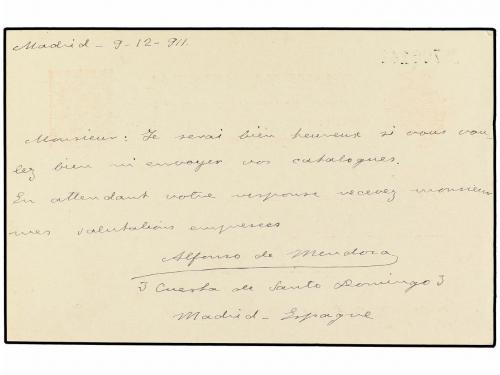 Madrid - 9-12-911.
Monsieur: Je serai bien heureux si vous vou-
lez bien m'envoyer vos catalogues.
En attendant votre response recevez monsieur
mes salutations empresees
Alfonso de Mendoza
3 Cuesta de Santo Domingo 3
Madrid - Espagne